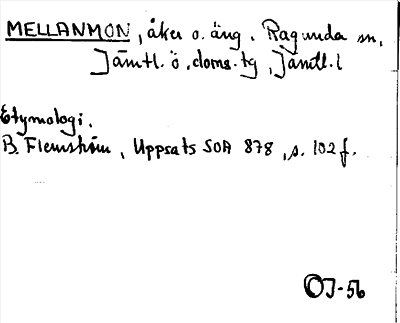 MELLANMON, åker o. äng. Ragunda sn,
Jämtl. ö. doms.-tg, Jämtl. l
Etymologi.
B. Flemström, Uppsats SOA 878, s. 102 f.
OJ-56